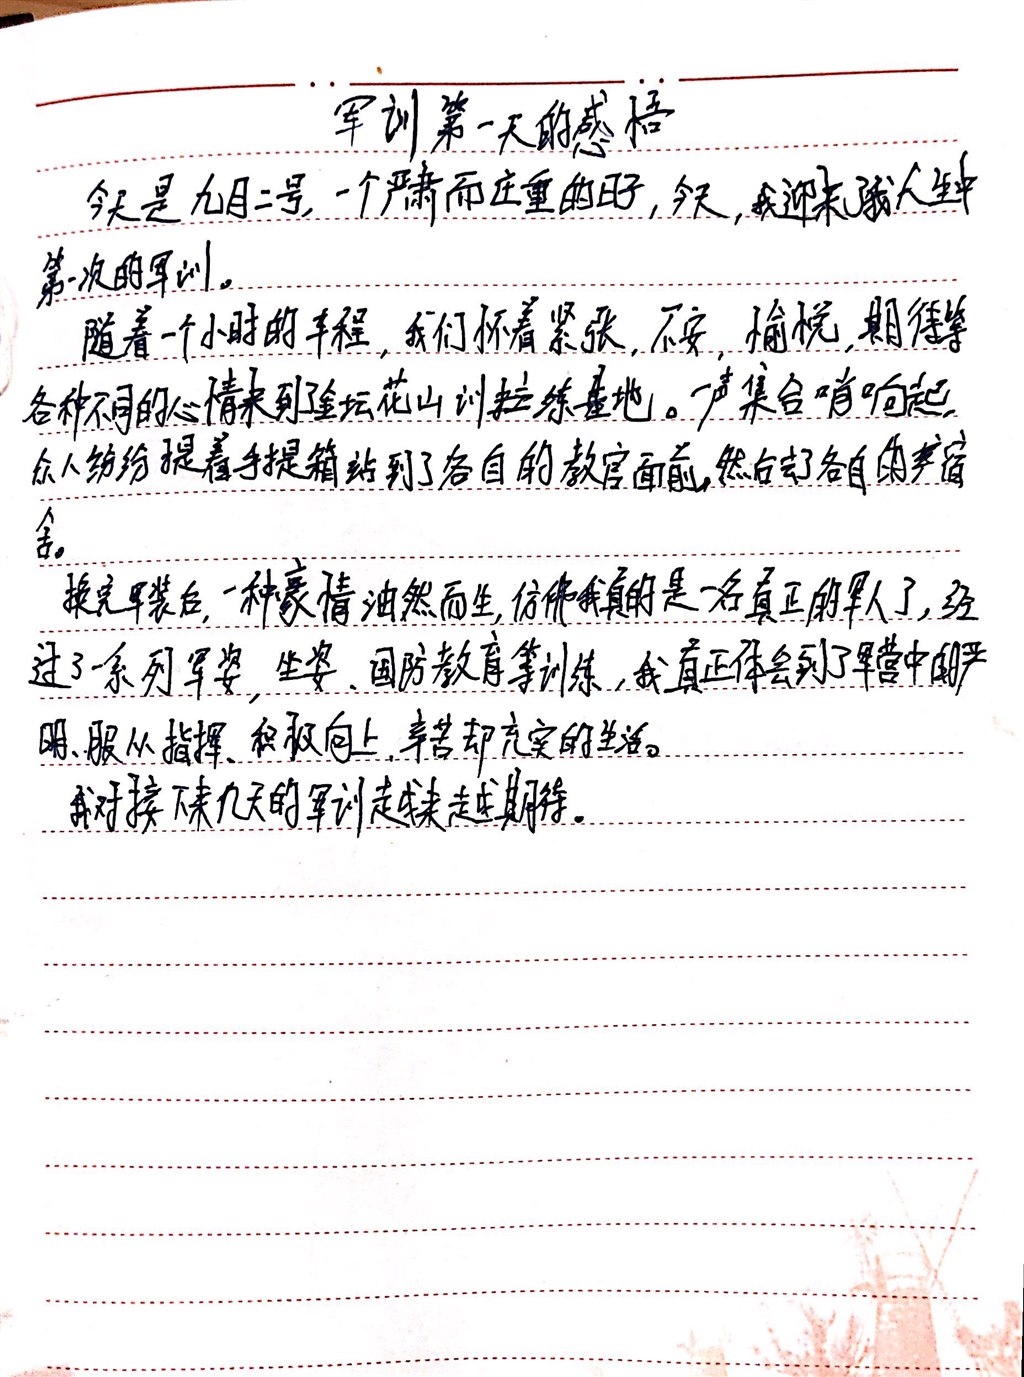 军训第一天的感悟
今天是九月二号,一个严肃而庄重的日子,今天,我迎来了我人生中
第一次的军训。
随着一个小时的车程,我们怀着紧张,不安,愉悦,期待等
各种不同的心情来到了金坛花山训拉练基地。一声集合哨响起,
众人纷纷提着手提箱站到了各自的教官面前,然后去了各自的宿
舍。
换完军装后,一种豪情油然而生,仿佛我真的是一名真正的军人了,经
过了一系列军姿,坐姿、国防教育等训练,我真正体会到了军营中的严
明、服从指挥、积极向上,辛苦却充实的生活。
我对接下来九天的军训越来越期待。